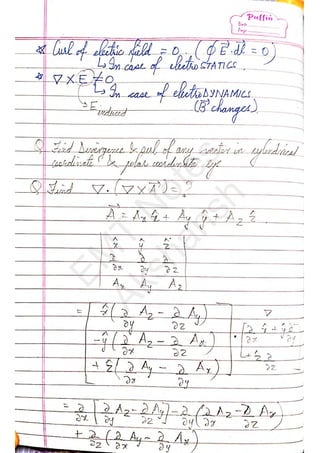 Puffin
Date
Page
Curl of electric field = 0 . (∮ E⃗·dl = 0)
↳ In case of electroSTATICS
∇ × E ≠ 0
↳ In case of electroDYNAMICS
E induced (B⃗ changes).
Q Find Divergence & curl of any vector in cylindrical
coordinate & polar coordinate sys
Q Find ∇ . (∇ × A⃗) = ?
A⃗ = Ax x̂ + Ay ŷ + Az ẑ .
x̂ ŷ ẑ
∂/∂x ∂/∂y ∂/∂z
Ax Ay Az
= [ x̂ (∂/∂y Az - ∂/∂z Ay) ∇
-ŷ (∂/∂x Az - ∂/∂z Ax) .
+ ẑ (∂/∂x Ay - ∂/∂y Ax) ]
= ∂/∂x [∂/∂y Az - ∂/∂z Ay] - ∂/∂y (∂/∂x Az - ∂/∂z Ax)
+ ∂/∂z (∂/∂x Ay - ∂/∂y Ax)
EMT Notes